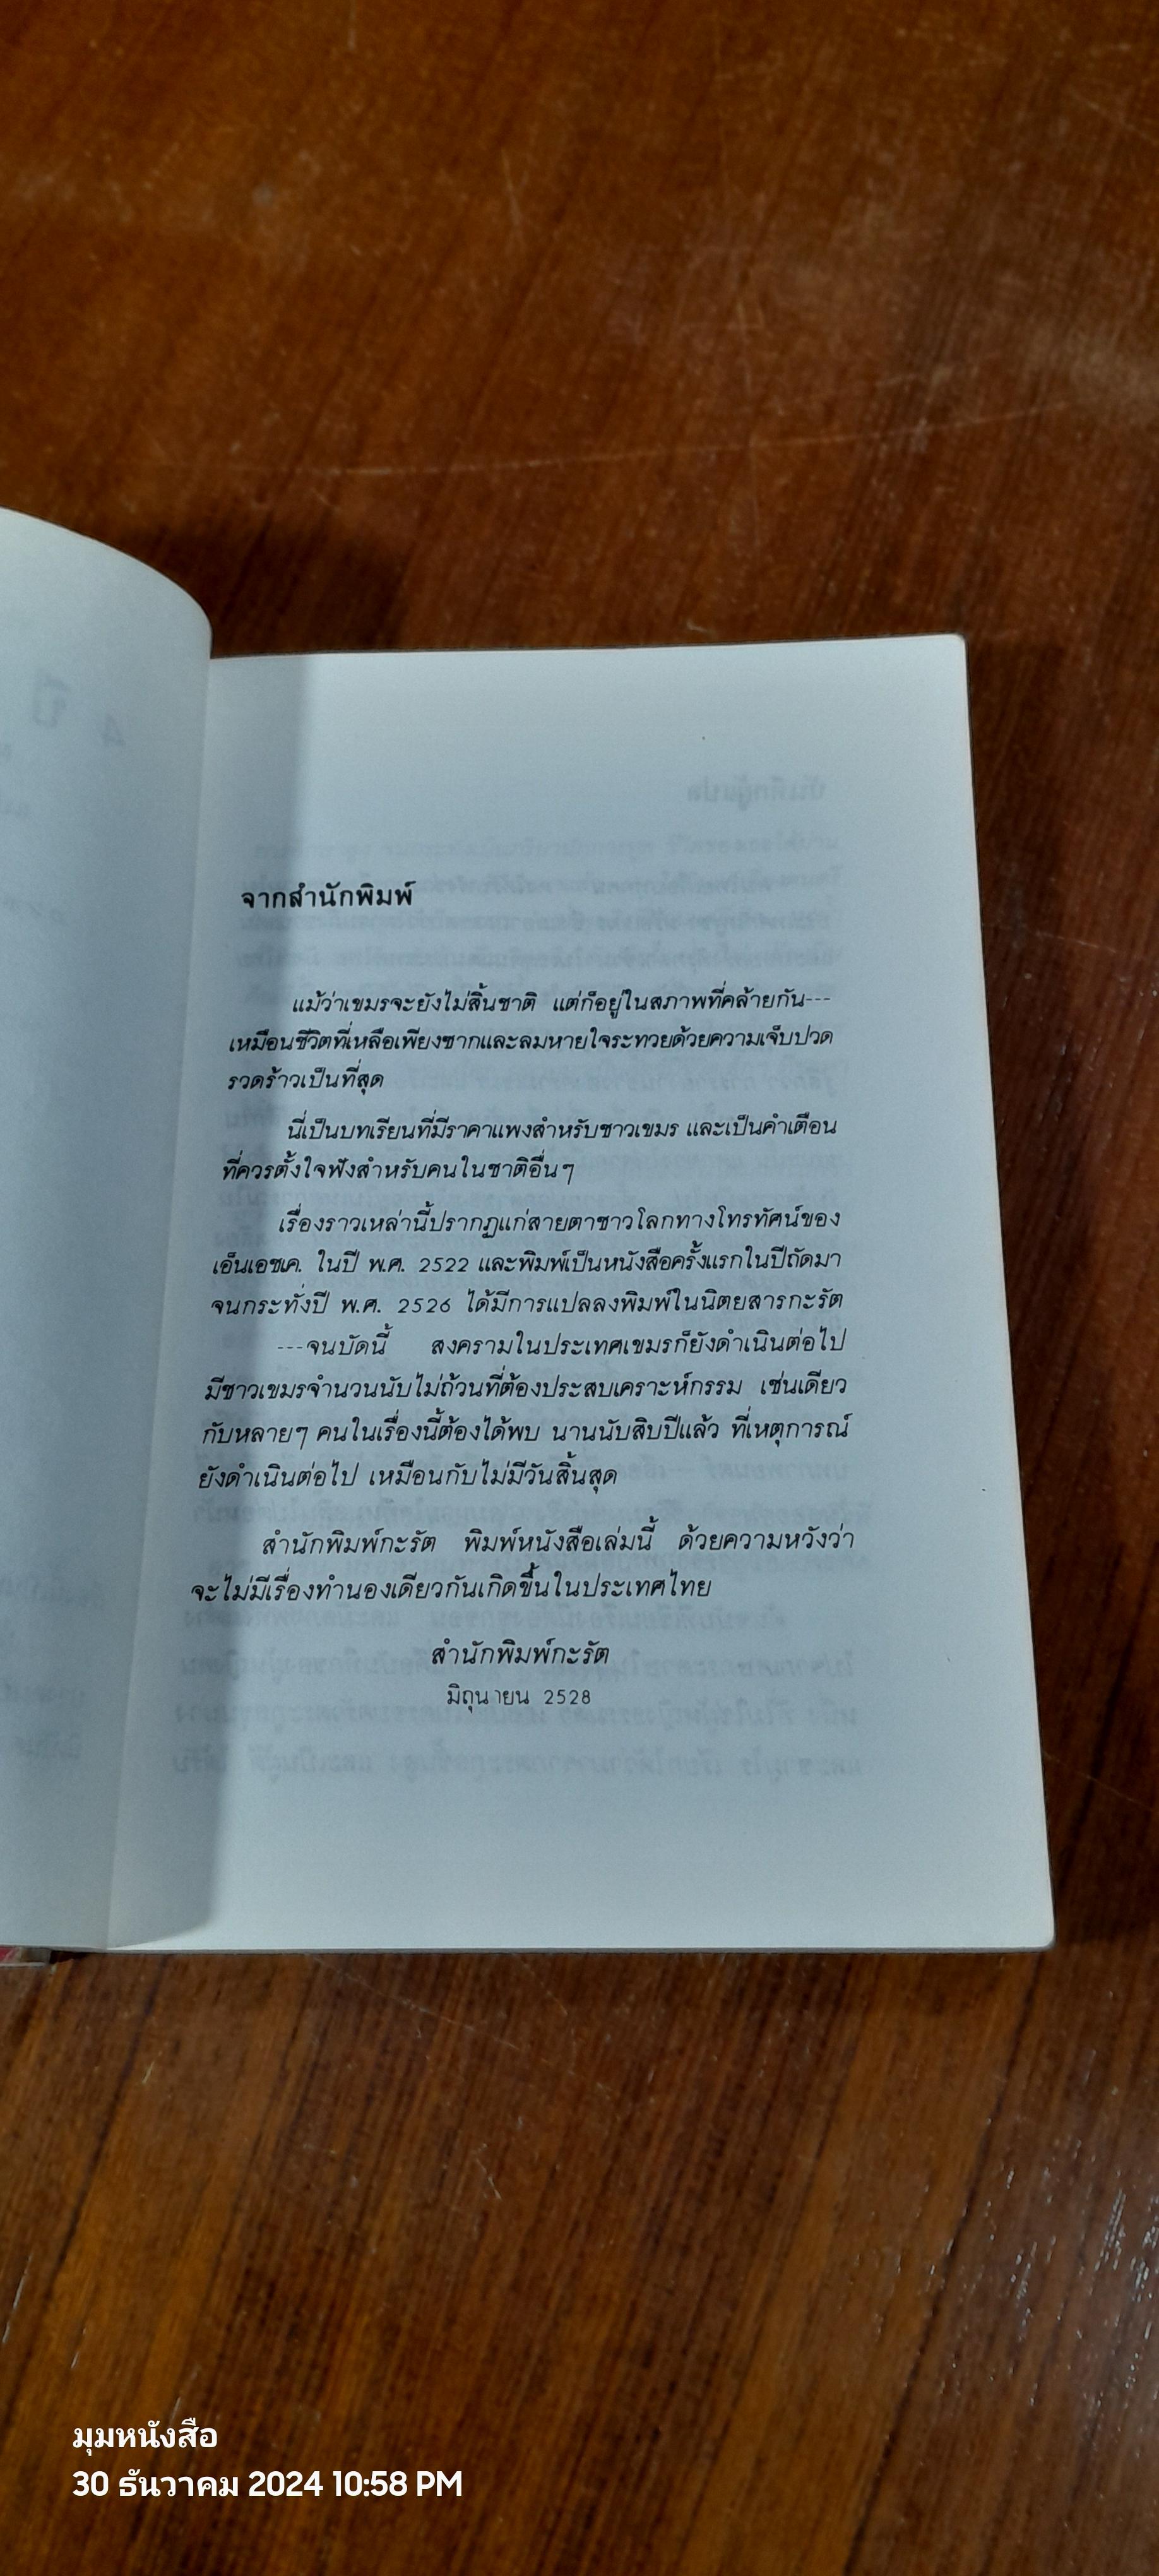 จากสำนักพิมพ์
แม้ว่าเขมรจะยังไม่สิ้นชาติ แต่ก็อยู่ในสภาพที่คล้ายกัน---
เหมือนชีวิตที่เหลือเพียงซากและลมหายใจระทวยด้วยความเจ็บปวด
รวดร้าวเป็นที่สุด
นี่เป็นบทเรียนที่มีราคาแพงสำหรับชาวเขมร และเป็นคำเตือน
ที่ควรตั้งใจฟังสำหรับคนในชาติอื่นๆ
เรื่องราวเหล่านี้ปรากฏแก่สายตาชาวโลกทางโทรทัศน์ของ
เอ็นเอชเค. ในปี พ.ศ. 2522 และพิมพ์เป็นหนังสือครั้งแรกในปีถัดมา
จนกระทั่งปี พ.ศ. 2526 ได้มีการแปลลงพิมพ์ในนิตยสารกะรัต
---จนบัดนี้ สงครามในประเทศเขมรก็ยังดำเนินต่อไป
มีชาวเขมรจำนวนนับไม่ถ้วนที่ต้องประสบเคราะห์กรรม เช่นเดียว
กับหลายๆ คนในเรื่องนี้ต้องได้พบ นานนับสิบปีแล้ว ที่เหตุการณ์
ยังดำเนินต่อไป เหมือนกับไม่มีวันสิ้นสุด
สำนักพิมพ์กะรัต พิมพ์หนังสือเล่มนี้ ด้วยความหวังว่า
จะไม่มีเรื่องทำนองเดียวกันเกิดขึ้นในประเทศไทย
สำนักพิมพ์กะรัต
มิถุนายน 2528
มุมหนังสือ
30 ธันวาคม 2024 10:58 PM